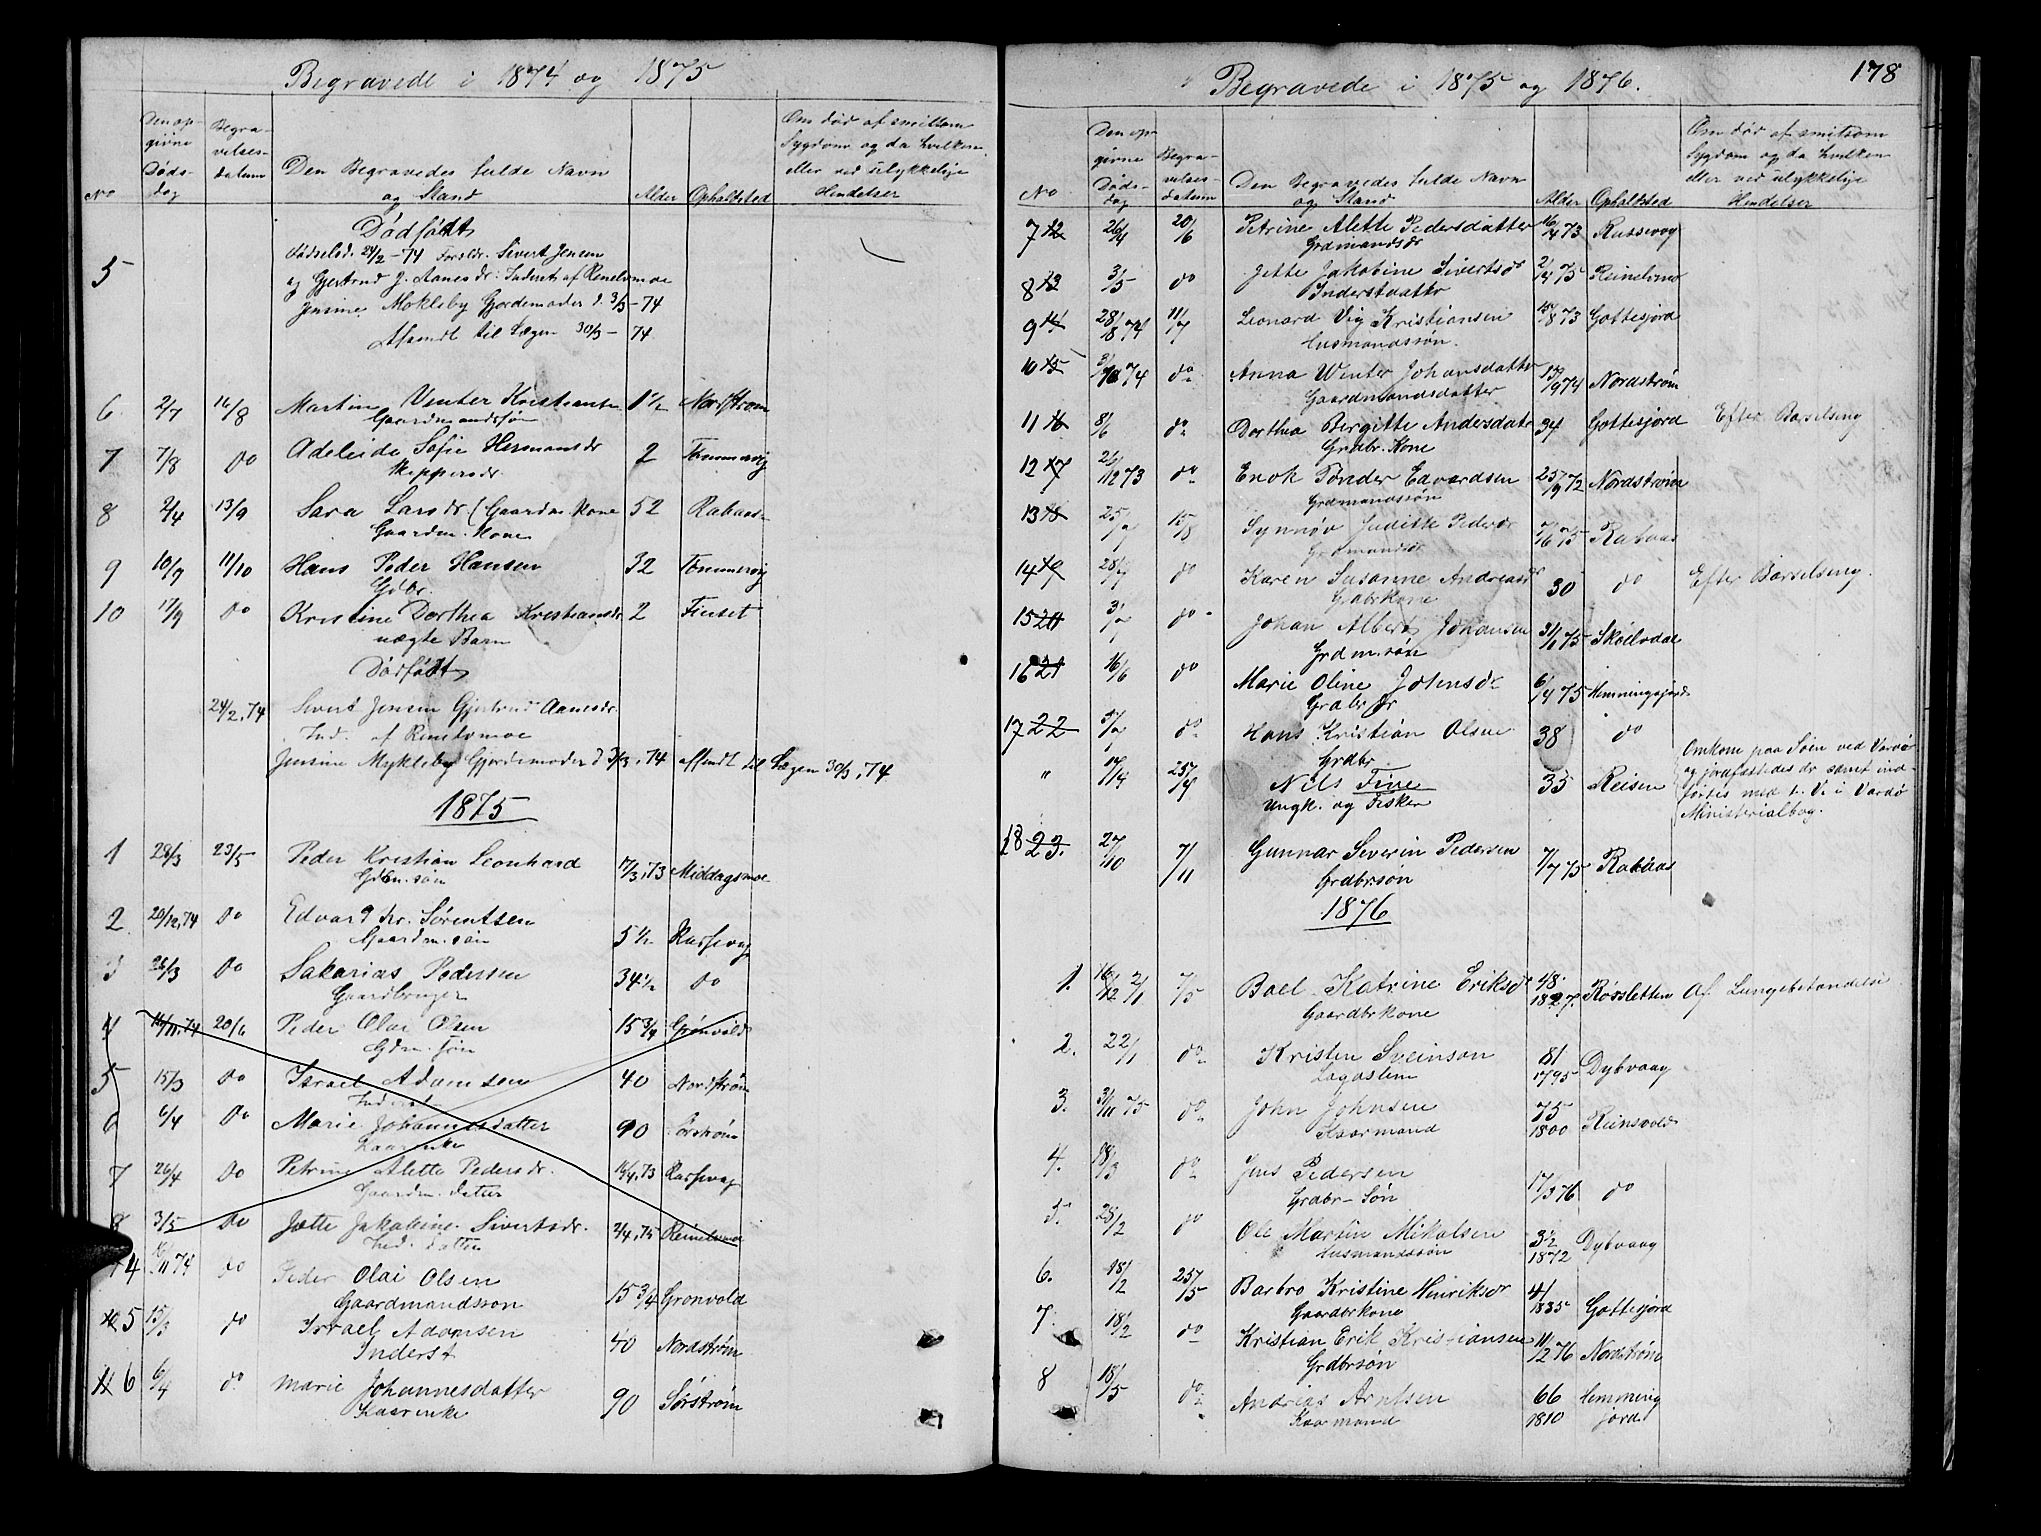 Begravede i 1874 og 1875
No
Den op-
givne
Døds-
dag
Begra-
velses-
datum
Den Begravedes fulde Navn
og Stand
Alder
Opholdsted
Om død af smittsom
Sygdom og da hvilken
eller ved ulykkelige
Hændelser
Dødfødt
5 Fødselsd. 24/2 - 74 Foreldr. Sivert Jensen
og Gjertrud J. Aanesdr: Inderst af Reinelvmoe
Jensine Mokleby Gjordemoder d. 3/3 - 74
Afsendt til Lægen 30/3 - 74
6 2/7 16/8 Martin Vinter Kristiansen 1 1/2 Nordstrøm
Gaardmandssøn
7 7/8 Do Adeleide Sofie Hermansdr 2 Tømmervig
Skippersdr.
8 2/4 13/9 Sara Larsdr (Gaardm. Kone 52 Rabaas
Gaardm. Kone
9 10/9 11/10 Hans Peder Hansen 32 Tømmervig
Gdbr.
10 17/9 Do Kristine Dorthea Kristiansdr 2 Finset
uægte Barn
Dødfødt
24/2, 74 Sivert Jensen Gjertrud Aanesdr.
Ind. af Reinelvmoe
Jensine Mykleby Gjordemoder d 3/3, 74 afsendt til Lægen 30/3, 74
1875
1 28/3 23/5 Peder Kristian Leonhard 17/3, 73 Middagsmoe
Gdm. søn
2 20/12, 74 Do Edvard Kr. Sørentsen 5 1/2 Russevaag
Gaardm. søn
3 26/3 Do Sakarias Pedersen 34 1/2 Do
Gaardbruger
4 16/11, 74 20/6 Peder Olai Olsen 15 3/4 Grønvold
Gdm. søn
5 15/3 Do Israel Adamsen 40 Nordstrøm
Inderst
6 6/4 Do Marie Johannesdatter 90 Sørstrøm
Kaarenke
7 26/4 Do Petrine Alette Pedersdr. 16/4, 73 Russevaag
Gaardm. datter
8 3/5 Do Jette Jakobine Sivertsdr. 2/4, 75 Reinelvmoe
Ind. datter
4 16/11 74 do Peder Olai Olsen 15 3/4 Gronvold
Gaardmandsson
10 5 15/3 do Israel Adamsen 40 Nordstrøm
Inderst
11 6 6/4 do Marie Johannesdatter 90 Sørstrøm
Kaarenke
178
Begravede i 1875 og 1876.
No
Den op-
givne
Døds-
dag
Begra-
velses-
datum
Den Begravedes fulde Navn
og Stand
Alder
Opholdsted
Om død af smitsom
Sygdom og da hvilken
eller ved ulykkelige
Hændelser
7 12 26/4 20/6 Petrine Alette Pedersdatter 16/4 73 Russevog
Grdmandsdr
8 13 3/5 do Jette Jakobine Sivertsdr 2/4 75 Reinelvmo
Inderstdatter
9 14 28/8 74 11/7 Leonard Vig Kristiansen 15/8 73 Gottesjord
Husmandssøn.
10 15 3/10 74 do Anna Winter Johansdatter 19/9 74 Nordstrøm
Gaardmandsdatter
11 16 8/6 do Dorthea Birgitte Andersdatr 34 Gottesjord Efter Barselseng
Grdbr. Kone
12 17 21/12 73 do Enok Tønder Edvardsen 25/9 72 Nordstrøm
Grdmandssøn
13 18 25/7 15/8 Synnøv Juditte Pedersdr 7/6 75 Rabaas
Grdmandsdr
14 19 28/7 do Karen Susanne Andreasdr 30 do Efter Barselseng.
Grdbrkone
15 20 3/7 do Johan Albert Johansen 31/1 75 Skøelvdal
Grdm. søn
16 21 16/6 do Marie Oline Johnsdr 6/4 75 Hemmingsjord
Grdbr dr
17 22 5/7 do Hans Kristian Olsen 38 do
Grdbr.
" 17/4 25/4 Nils Fine 35 Reisen
Ungk. og Fisker
Omkom paa Søen ved Vardø
og jordfæstedes dr samt ind-
førtes med L. V. i Vardø
Ministerialbog.
18 23. 27/10 7/11 Gunnar Severin Pedersen 7/7 75 Rabaas
Grdbrsøn
1876
1. 16/12 2/1 7/5 Boel Katrine Eriksdr 48. Røssletten Af Lungebetændelse
Gaardbrkone 1827.
2. 22/1 do Kristen Sveinson 81 Dybvaag
Lægdslem 1795
3. 3/11 75 do John Johnsen 75 Reinsvold
Kaarmand 1800
4. 18/3 do Jens Pedersen 17/3 76 do
Grdbr - Søn
5. 25/2 do Ole Martin Mikalsen 3 1/2 Dybvaag
Husmandssøn 1872
6. 18/2 25/5 Barbro Kristine Henriksdr 41 Gottesjord
Gaardbrkone 1835
7. 18/2 do Kristian Erik Kristiansen 11/2 76 Nordstrøm
Grdbrsøn
8 18/5 do Andreas Arntsen 66 Hemming
Kaarmand 1810 jord